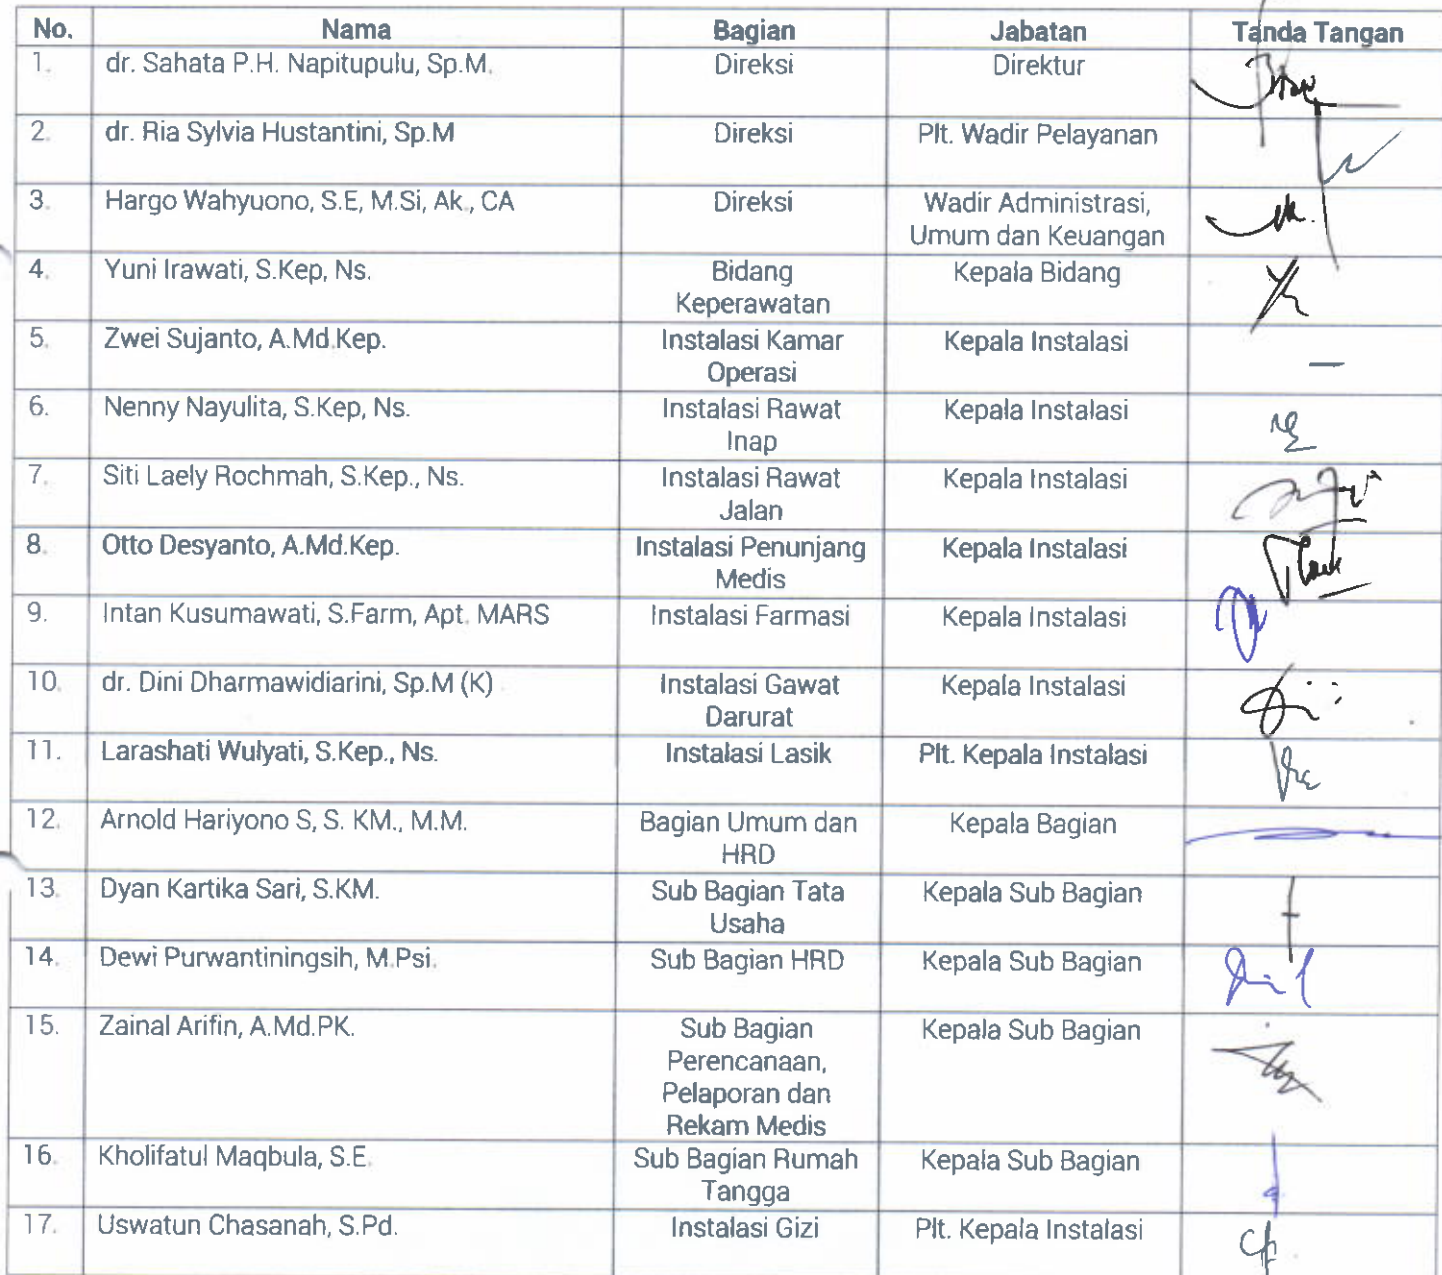 No. Nama Bagian Jabatan Tanda Tangan
1. dr. Sahata P.H. Napitupulu, Sp.M. Direksi Direktur
2. dr. Ria Sylvia Hustantini, Sp.M Direksi Plt. Wadir Pelayanan
3. Hargo Wahyuono, S.E, M.Si, Ak., CA Direksi Wadir Administrasi,
Umum dan Keuangan
4. Yuni Irawati, S.Kep, Ns. Bidang Kepala Bidang
Keperawatan
5. Zwei Sujanto, A.Md.Kep. Instalasi Kamar Kepala Instalasi
Operasi
6. Nenny Nayulita, S.Kep, Ns. Instalasi Rawat Kepala Instalasi
Inap
7. Siti Laely Rochmah, S.Kep., Ns. Instalasi Rawat Kepala Instalasi
Jalan
8. Otto Desyanto, A.Md.Kep. Instalasi Penunjang Kepala Instalasi
Medis
9. Intan Kusumawati, S.Farm, Apt. MARS Instalasi Farmasi Kepala Instalasi
10. dr. Dini Dharmawidiarini, Sp.M (K) Instalasi Gawat Kepala Instalasi
Darurat
11. Larashati Wulyati, S.Kep., Ns. Instalasi Lasik Plt. Kepala Instalasi
12. Arnold Hariyono S, S. KM., M.M. Bagian Umum dan Kepala Bagian
HRD
13. Dyan Kartika Sari, S.KM. Sub Bagian Tata Kepala Sub Bagian
Usaha
14. Dewi Purwantiningsih, M.Psi. Sub Bagian HRD Kepala Sub Bagian
15. Zainal Arifin, A.Md.PK. Sub Bagian Kepala Sub Bagian
Perencanaan,
Pelaporan dan
Rekam Medis
16. Kholifatul Maqbula, S.E. Sub Bagian Rumah Kepala Sub Bagian
Tangga
17. Uswatun Chasanah, S.Pd. Instalasi Gizi Plt. Kepala Instalasi